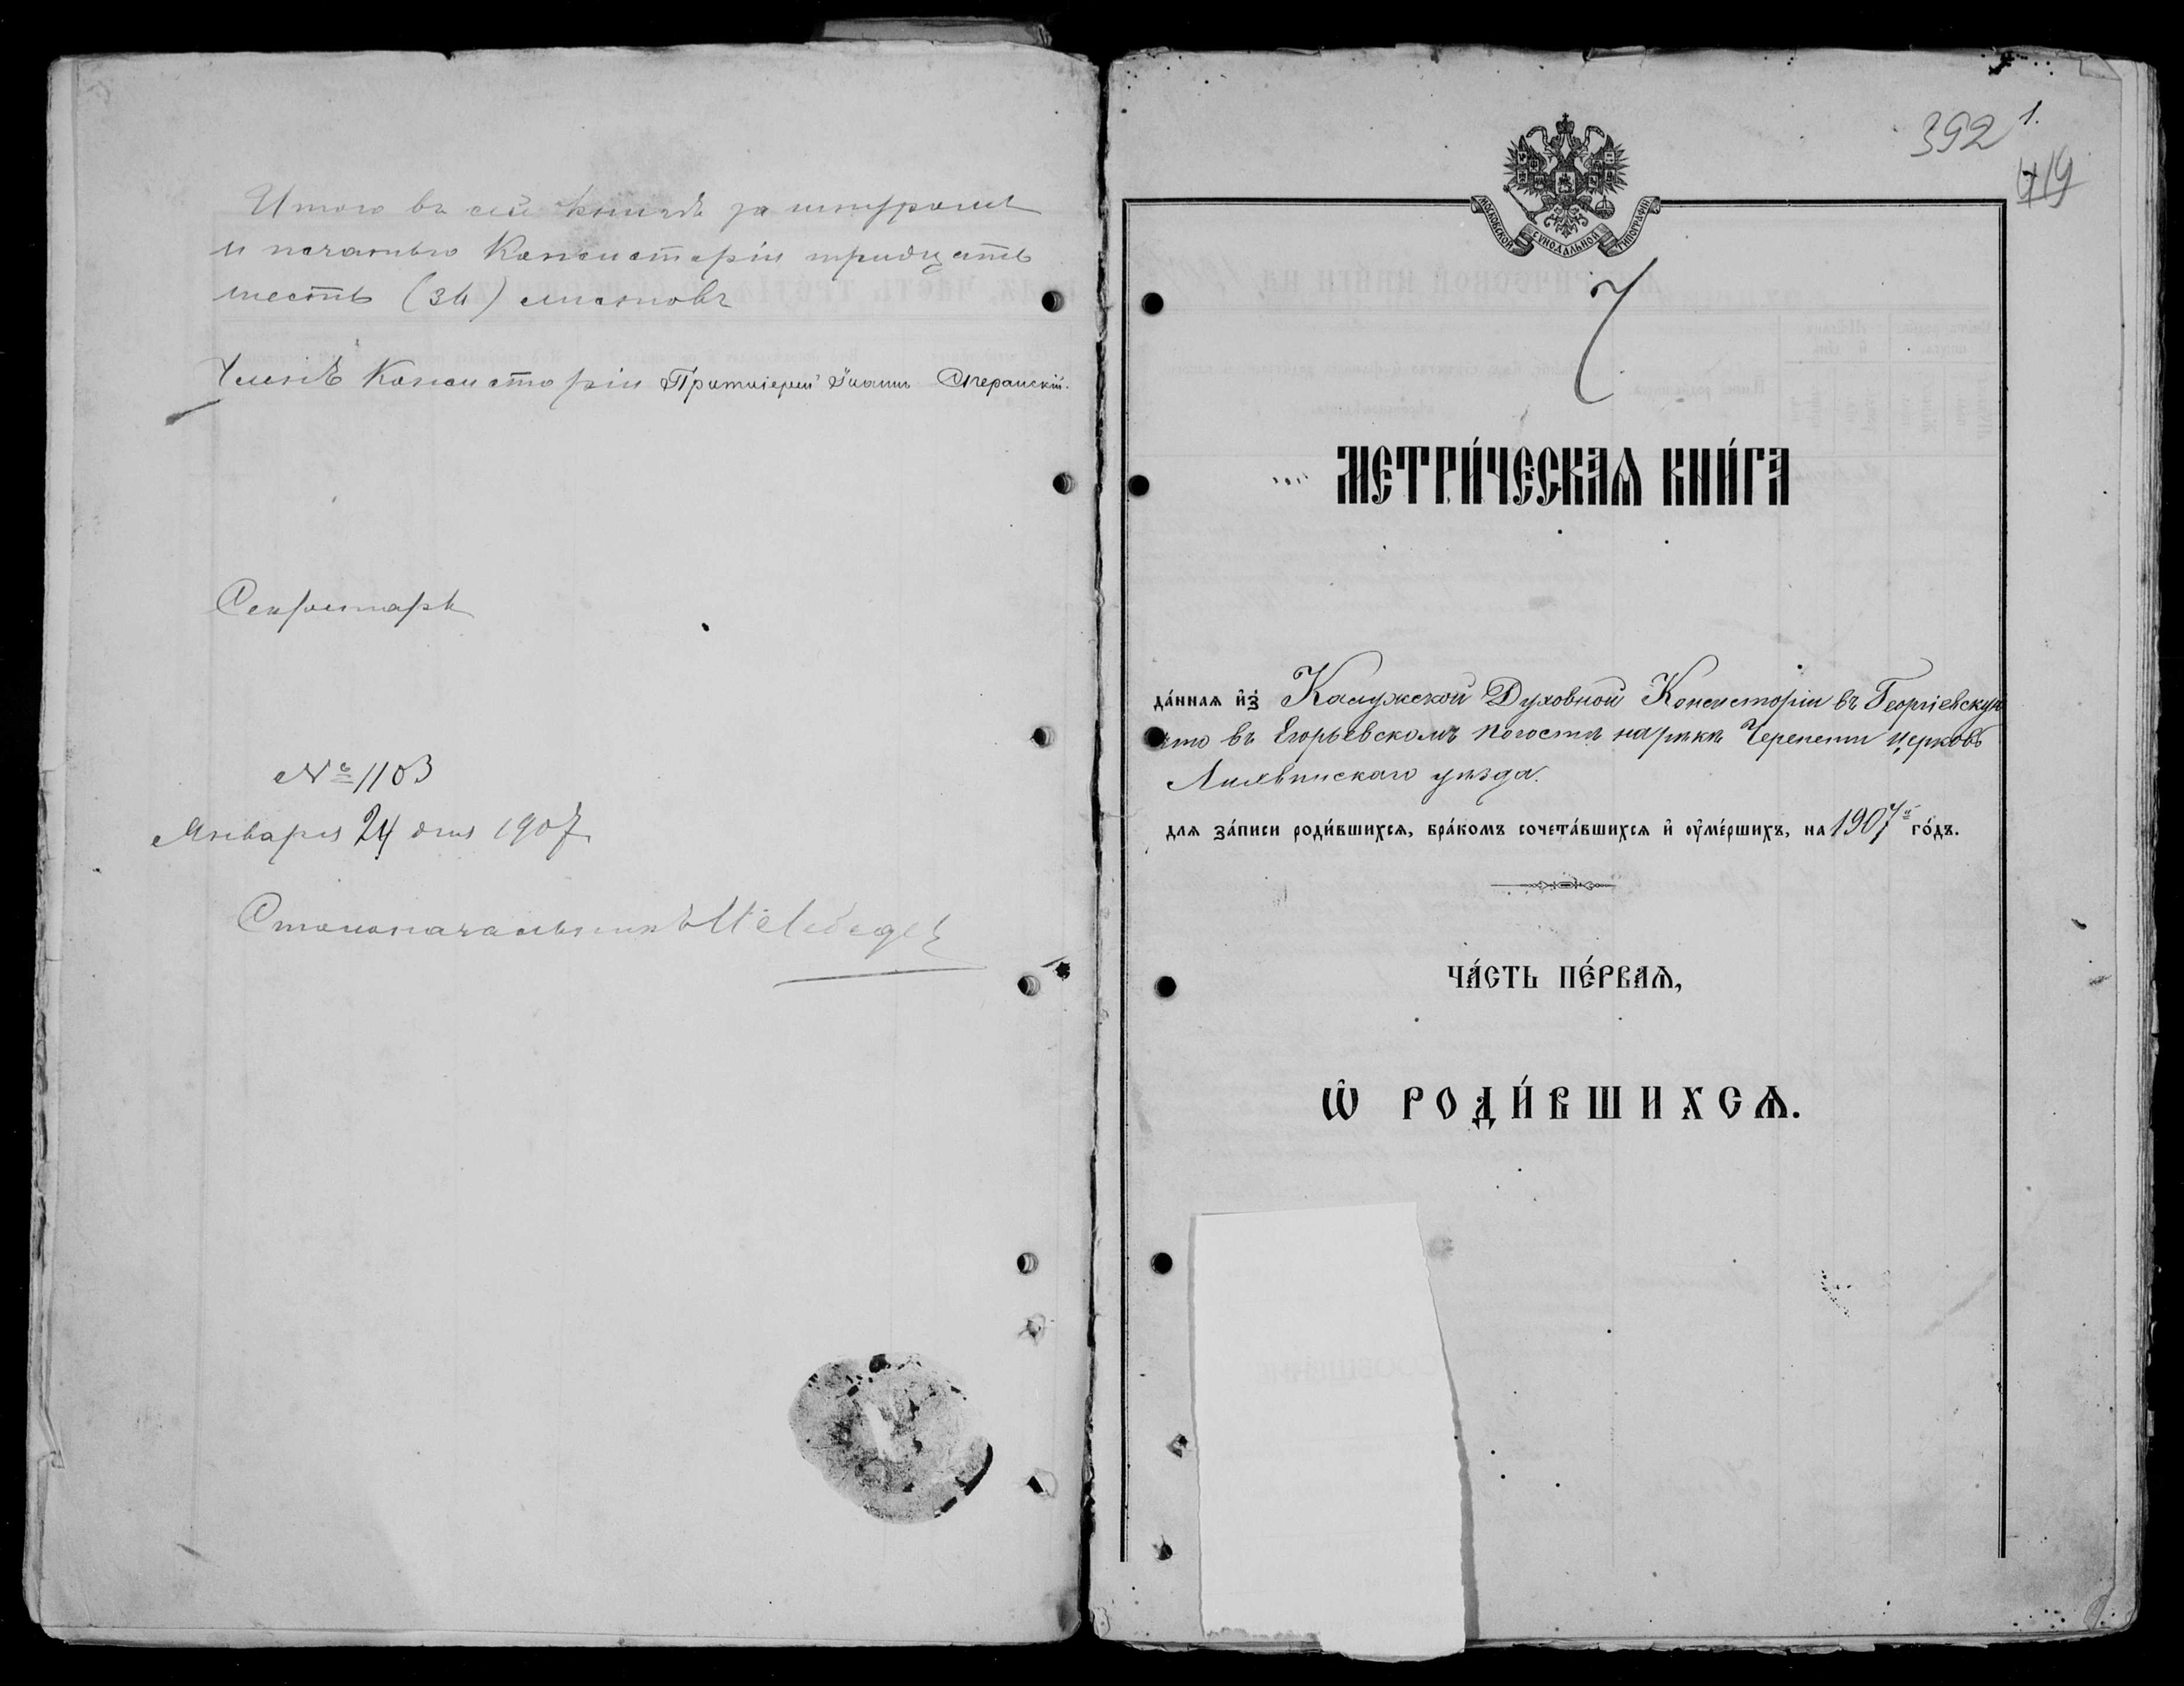 Итого въ сей книгѣ за шнуромъ
и печатью Консисторіи тридцать
шесть (36) листовъ
Членъ Консисторіи Протоіерей Іоаннъ Сперанскій.
Секретарь
№ 1103
Января 24 дня 1907
Столоначальникъ Лебедев
392 1.
419
МОСКОВСКОЙ СѴНОДАЛЬНОЙ ТИПОГРАФІИ
7
МЕТРИ́ЧЕСКАѦ КНИ́ГА
да́ннаѧ и҆з̾ Калужской Духовной Консисторіи въ Георгіевскую
что въ Егорьевскомъ погостѣ на рѣкѣ Черепети церковь
Лихвинскаго уѣзда.
для за́писи роди́вшихсѧ, бра́комъ сочета́вшихсѧ и҆ оу҆ме́ршихъ, на 1907й го́дъ.
ЧА́СТЬ ПЕ́РВАѦ,
Ѡ҆ РОДИ́ВШИХСѦ.